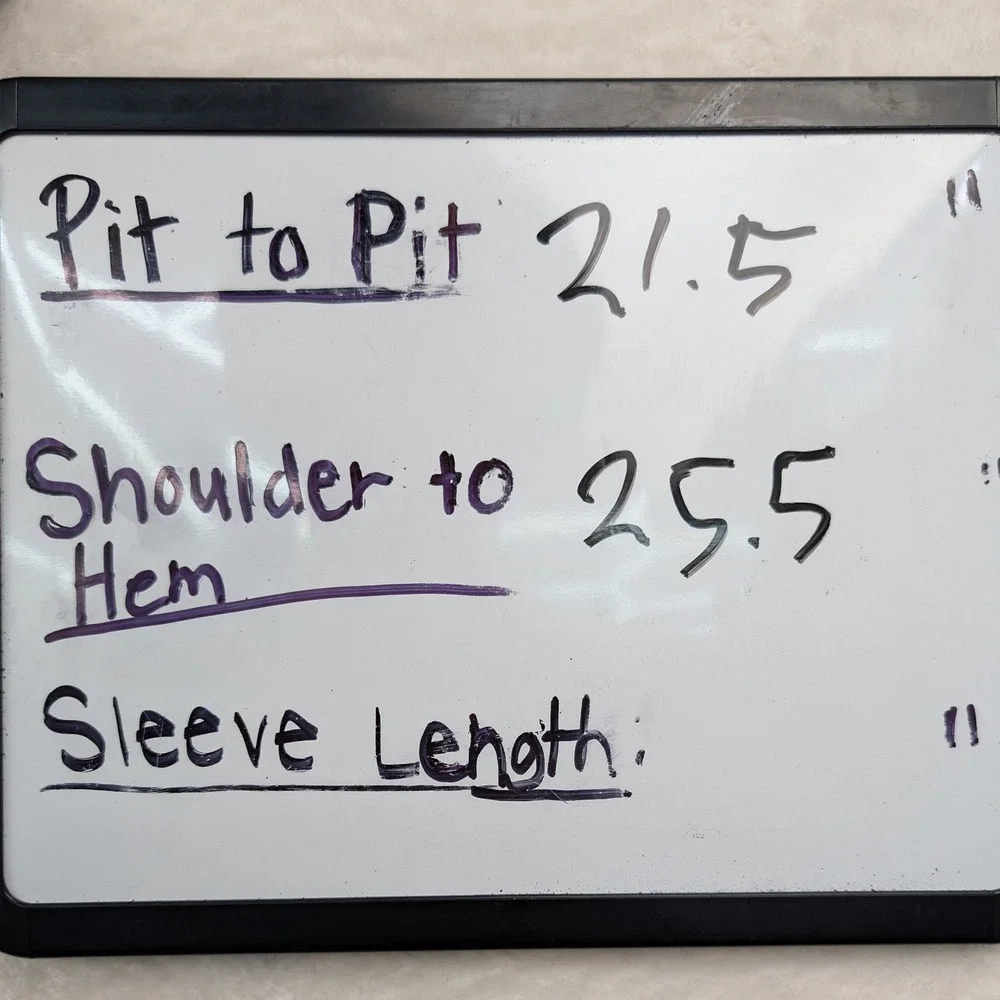 Pit to Pit 21.5 "
Shoulder to 25.5 "
Hem
Sleeve Length: "